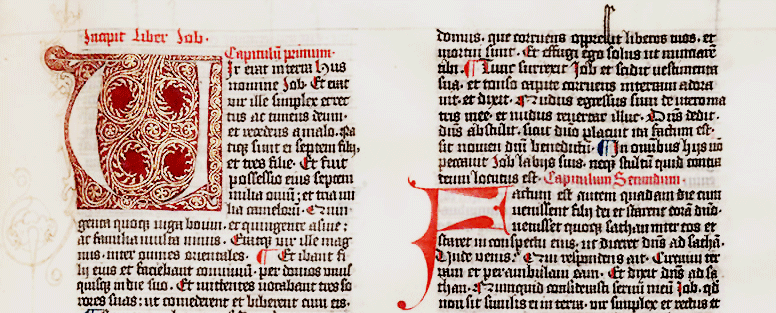 Incipit Liber Job.
Capitulū primum.
Vir erat in terra Hus
nomine Job. Et erat
vir ille simplex et rec
tus ac timens deum:
et recedens a malo. Na
tiq; sunt ei septem filij,
et tres filie. Et fuit
possessio eius septem
milia oviū: et tria mi
lia camelorū. Quin
genta quoq; iuga boum. et quingente asine:
ac familia multa nimis. Eratq; vir ille mag
nus. inter omnes orientales. Et ibant fi
lij eius et faciebant cōvivium. per domos unus
quisq; in die suo. Et mittentes vocabant tres so
rores suas: ut comederent et biberent cum eis.
domus. que corruens oppressit liberos tuos. et
mortui sunt. Et effugi ego solus ut nunciarē
tibi. Tunc surrexit Job et scidit vestimenta
sua. et tonso capite corruens in terram adora
vit. et dixit. Nudus egressus sum de utero ma
tris mee. et nudus revertar illuc. Dn̄s dedit.
dn̄s abstulit. sicut dn̄o placuit ita factum est.
sit nomen dn̄i benedictū. In omnibus hijs nō
peccavit Job labijs suis. neq; stultū quid contra
deum locutus est. Capitulum Secundum.
Factum est autem quadam die cum
venissent filij dei et starent corā dn̄o.
venisset quoq; sathan inter eos et
staret in conspectu eius. ut diceret dn̄s ad sathā.
Unde venis? Qui respondens ait. Circuivi ter
ram et perambulavi eam. Et dixit dn̄s ad sa
than. Numquid considerasti servum meū Job. qđ
non sit similis ei in terra. vir simplex et rectus et